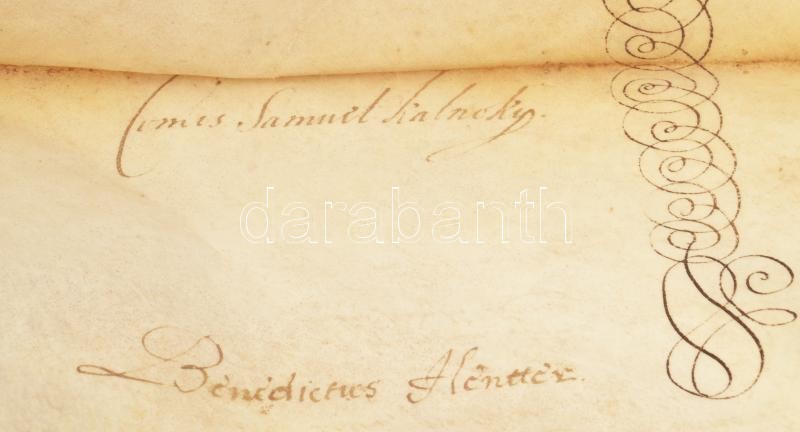 Comes Samuel Kalnoky.
darabanth
Benedictus Hentter.